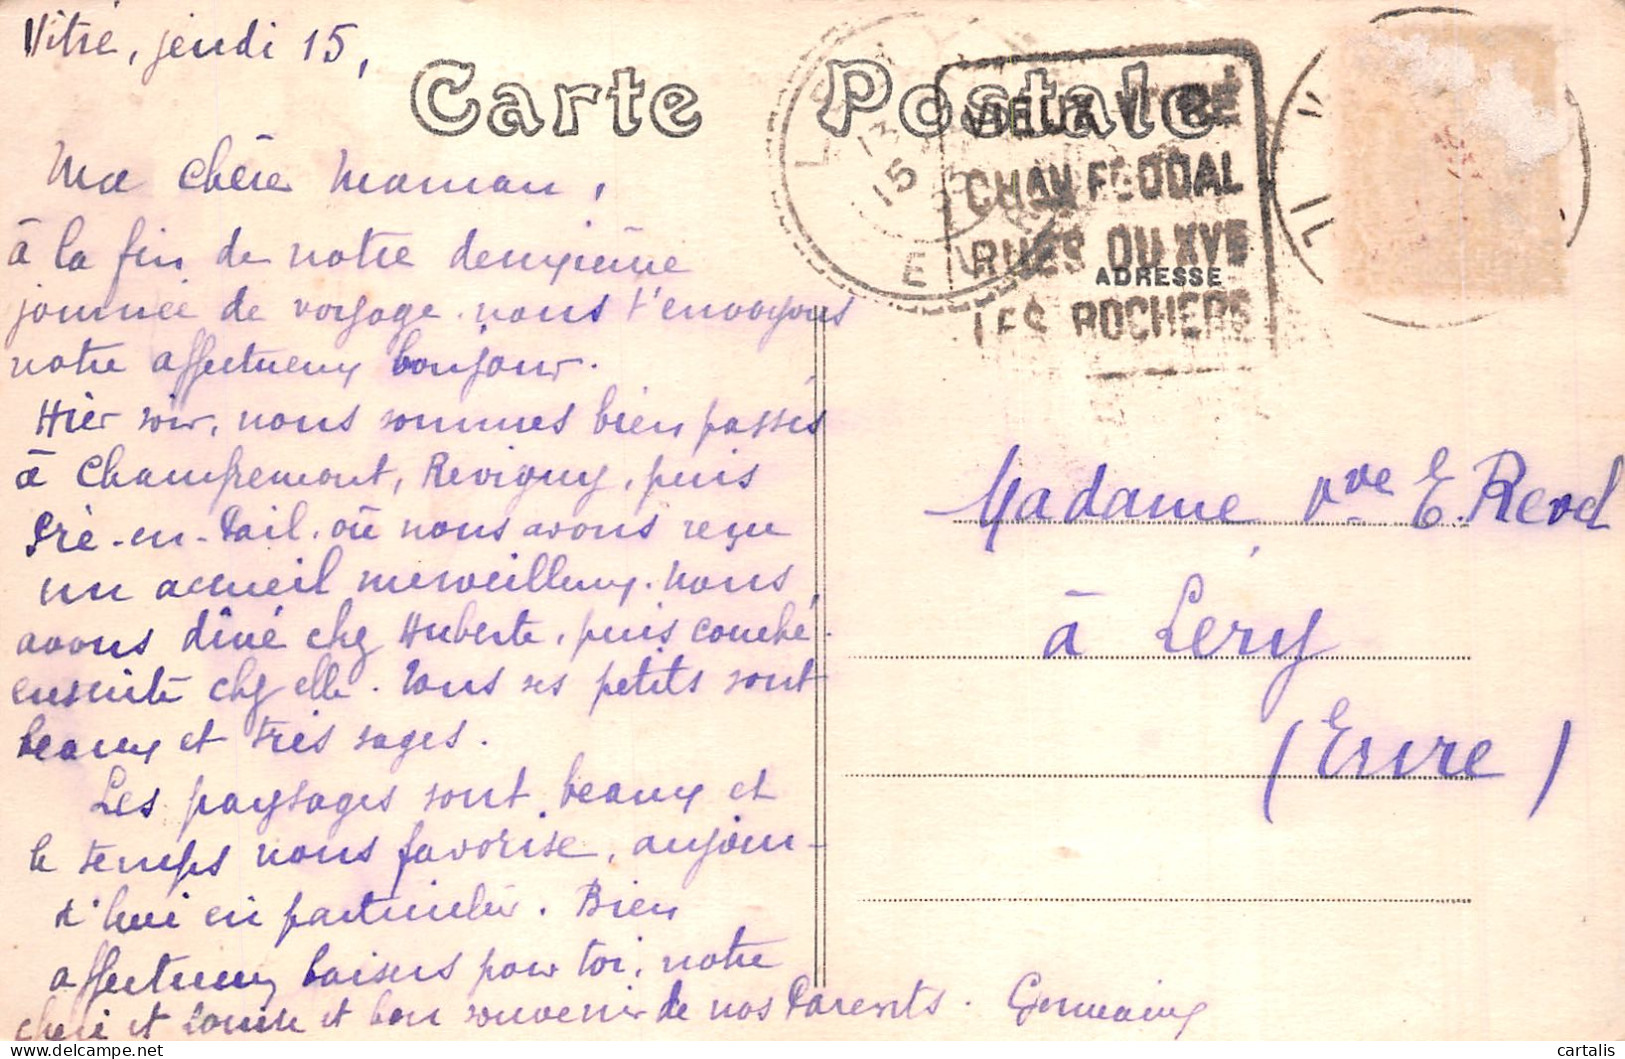 Vitré, jeudi 15,
Carte Postale
Ma chère Maman,
à la fin de notre deuxième
journée de voyage nous t'envoyons
notre affectueux bonjour.
Hier soir, nous sommes bien passés
à Champfremont, Revigny, puis
Pré-en-Pail, où nous avons reçu
un accueil merveilleux. Nous
avons dîné chez Huberte, puis couché
ensuite chez elle. Tous ses petits sont
beaux et très sages.
Les paysages sont beaux et
le temps nous favorise, aujour-
d'hui en particulier. Bien
affectueux baisers pour toi, notre
chéri et Louise et bon souvenir de nos Parents. Germaine
LERY
13
15
EURE
VIEUX VITRÉ
CHAU FEODAL
RUES DU XVE
LES ROCHERS
ADRESSE
Madame Vve E. Revel
à Léry
(Eure)
cartalis